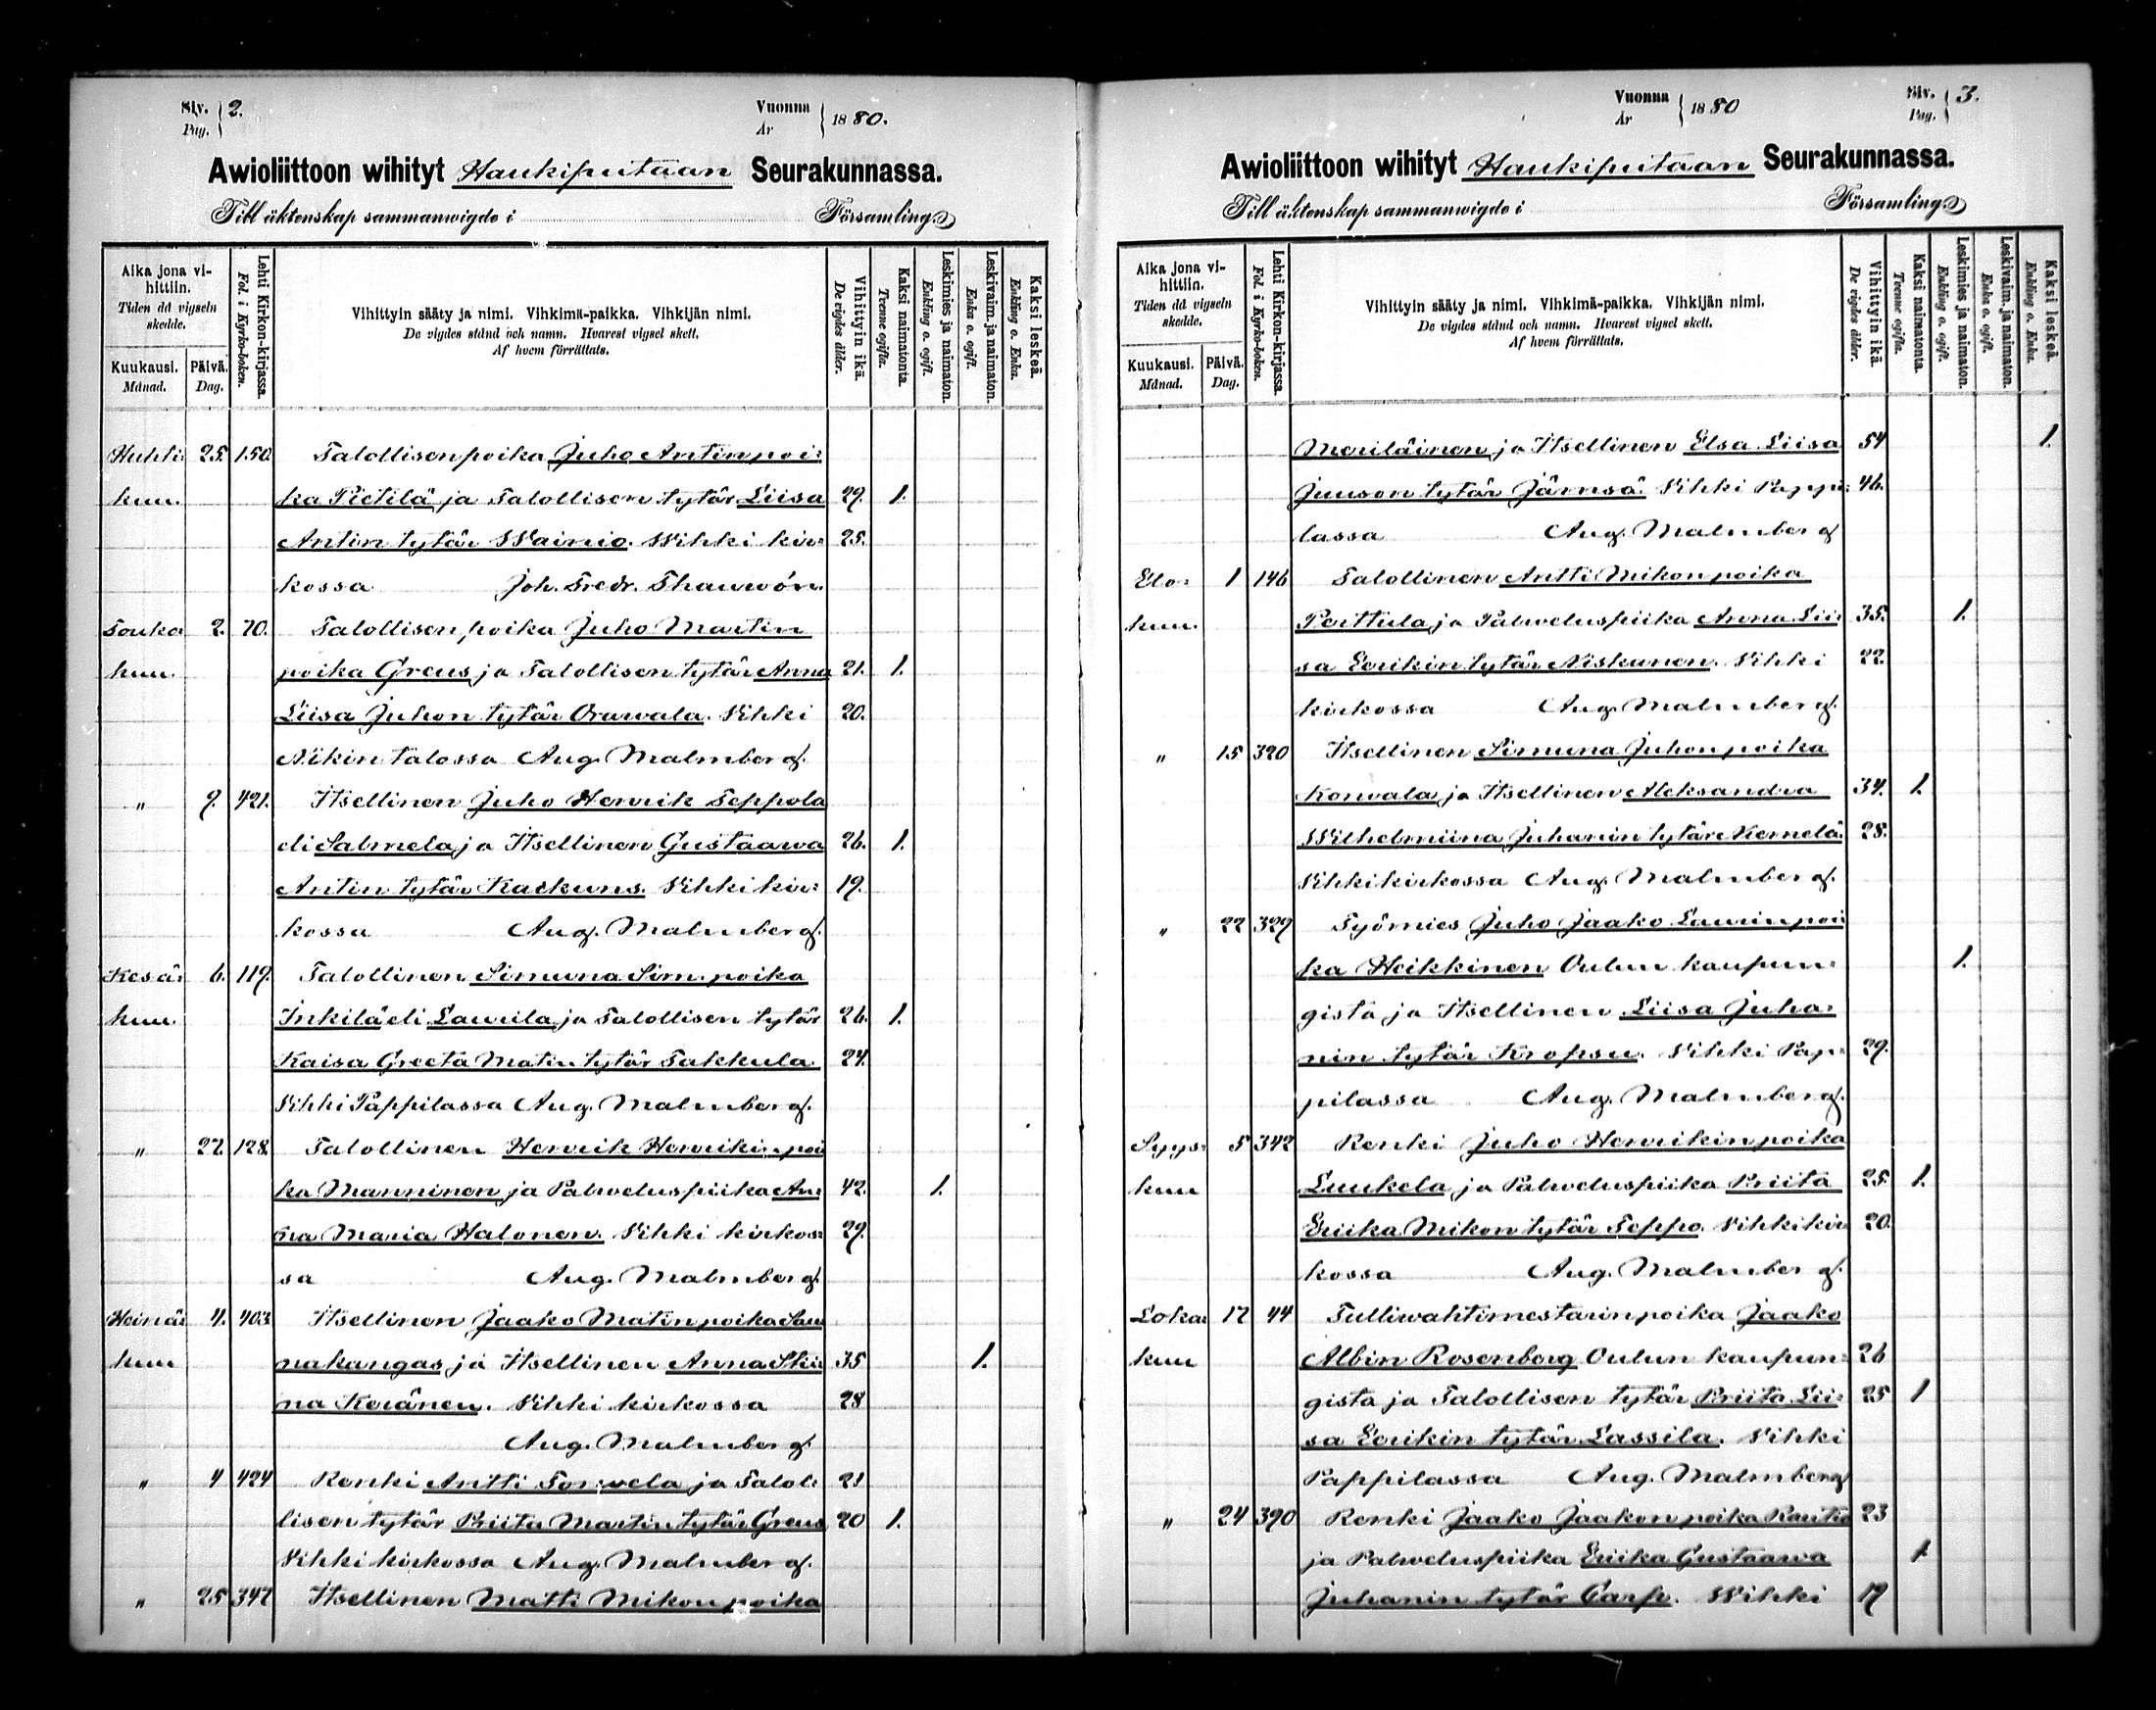 Siv. Pag. 2.
Vuonna År 1880.
Awioliittoon wihityt Haukiputaan Seurakunnassa.
Till äktenskap sammanwigde i Församling.
Aika jona vihittiin. Tiden då vigseln skedde.
Kuukausi. Månad.
Päivä. Dag.
Lehti Kirkon-kirjassa. Fol. i Kyrko-boken.
Vihittyin sääty ja nimi. Vihkimä-paikka. Vihkijän nimi.
De vigdes stånd och namn. Hvarest vigsel skett.
Af hvem förrättats.
Vihittyin ikä. De vigdes ålder.
Kaksi naimatonta. Tvenne ogifta.
Leskimies ja naimaton. Enkling o. ogift.
Leskivaim. ja naimaton. Enka o. ogift.
Kaksi leskeä. Enkling o. Enka.
Huhti: 25. 150. Talollisenpoika Juho Antinpoi:
kuu. ka Pietilä ja Talollisen tytär Liisa 29. 1.
Antin tytär Wainio. Wihki kir: 25.
kossa Joh. Fredr. Thauwón.
Touko 2. 70. Talollisen poika Juho Martin
kuu. poika Greus ja Talollisen tytär Anna 21. 1.
Liisa Juhon tytär Orawala. Vihki 20.
Nikin talossa Aug. Malmberg.
„ 9. 421. Itsellinen Juho Henrik Seppola
eli Salmela ja Itsellinen Gustaawa 26. 1.
Antin tytär Kackuns. Vihki kir: 19.
kossa Aug. Malmberg.
Kesä: 6. 119. Talollinen Simuna Sim. poika
kuu. Inkilä eli Laurila ja Talollisen tytär 26. 1.
Kaisa Greeta Matin tytär Takkula. 24.
Vihki Pappilassa Aug. Malmberg.
„ 27. 128. Talollinen Henrik Henrikin poi
ka Manninen ja Palweluspiika An: 42. 1.
na Maria Halonen. Vihki kirkos: 29.
sa Aug. Malmberg.
Heinä: 4. 403. Itsellinen Jaako Matin poika Sau
kuu nakangas ja Itsellinen Anna Stii 35 1.
na Keränen. Vihki kirkossa 28
Aug. Malmberg.
„ 4 424 Renki Antti Torwela ja Talol: 21
lisen tytär Priita Martin tytär Greus 20 1.
Vihki kirkossa Aug. Malmberg.
„ 25 347 Itsellinen Matti Mikon poika
Vuonna År 1880
Siv. Pag. 3.
Awioliittoon wihityt Haukiputaan Seurakunnassa.
Till äktenskap sammanwigde i Församling.
Aika jona vihittiin. Tiden då vigseln skedde.
Kuukausi. Månad.
Päivä. Dag.
Lehti Kirkon-kirjassa. Fol. i Kyrko-boken.
Vihittyin sääty ja nimi. Vihkimä-paikka. Vihkijän nimi.
De vigdes stånd och namn. Hvarest vigsel skett.
Af hvem förrättats.
Vihittyin ikä. De vigdes ålder.
Kaksi naimatonta. Tvenne ogifta.
Leskimies ja naimaton. Enkling o. ogift.
Leskivaim. ja naimaton. Enka o. ogift.
Kaksi leskeä. Enkling o. Enka.
Meriläinen ja Itsellinen Elsa Liisa 54 1.
Juuson tytär Jämsä. Vihki Pappi: 46.
lassa Aug. Malmberg
Elo: 1 146 Talollinen Antti Mikon poika
kuu. Perttula ja Palweluspiika Anna Lii: 35. 1.
sa Eerikin tytär Niskanen. Vihki 22.
kirkossa Aug. Malmberg.
„ 15 320 Itsellinen Simuna Juhon poika
Konwala ja Itsellinen Aleksandra 34. 1.
Wilhelmiina Juhanin tytär Kemelä. 28.
Vihki kirkossa Aug. Malmberg.
„ 22 329 Työmies Juho Jaako Laurin poi
ka Heikkinen Oulun kaupun: 1.
gista ja Itsellinen Liisa Juha:
nin tytär Kropsu. Vihki Pap: 29.
pilassa Aug. Malmberg.
Syys: 5 342 Renki Juho Henrikin poika
kuu Luukela ja Palweluspiika Priita 25. 1.
Eriika Mikon tytär Seppo. Vihki kir 20.
kossa Aug. Malmberg.
Loka: 17 44 Tulliwahtimestarin poika Jaako
kuu Albin Rosenberg Oulun kaupun: 26
gista ja Talollisen tytär Priita Lii: 25 1
sa Eerikin tytär Lassila. Vihki
Pappilassa Aug. Malmberg
„ 24 390 Renki Jaako Jaakon poika Rautio 23
ja Palweluspiika Eriika Gustaawa 1
Juhanin tytär Garp. Wihki 19